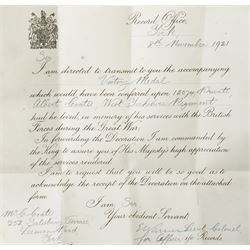 Record Office,
York
8th November 1921
Sir
I am directed to transmit to you the accompanying
Victory Medal
which would have been conferred upon Private
Albert Coates West Yorkshire Regiment
had he lived, in memory of his services with the British
Forces during the Great War.
In forwarding the Decoration I am commanded
by the King to assure you of His Majesty's high appreciation
of the services rendered.
I am to request that you will be so good as to
acknowledge the receipt of the Decoration on the attached
form.
I am, Sir
Your obedient Servant,
Mr C. Coates
Lieut. Colonel
for Officer i/c Records